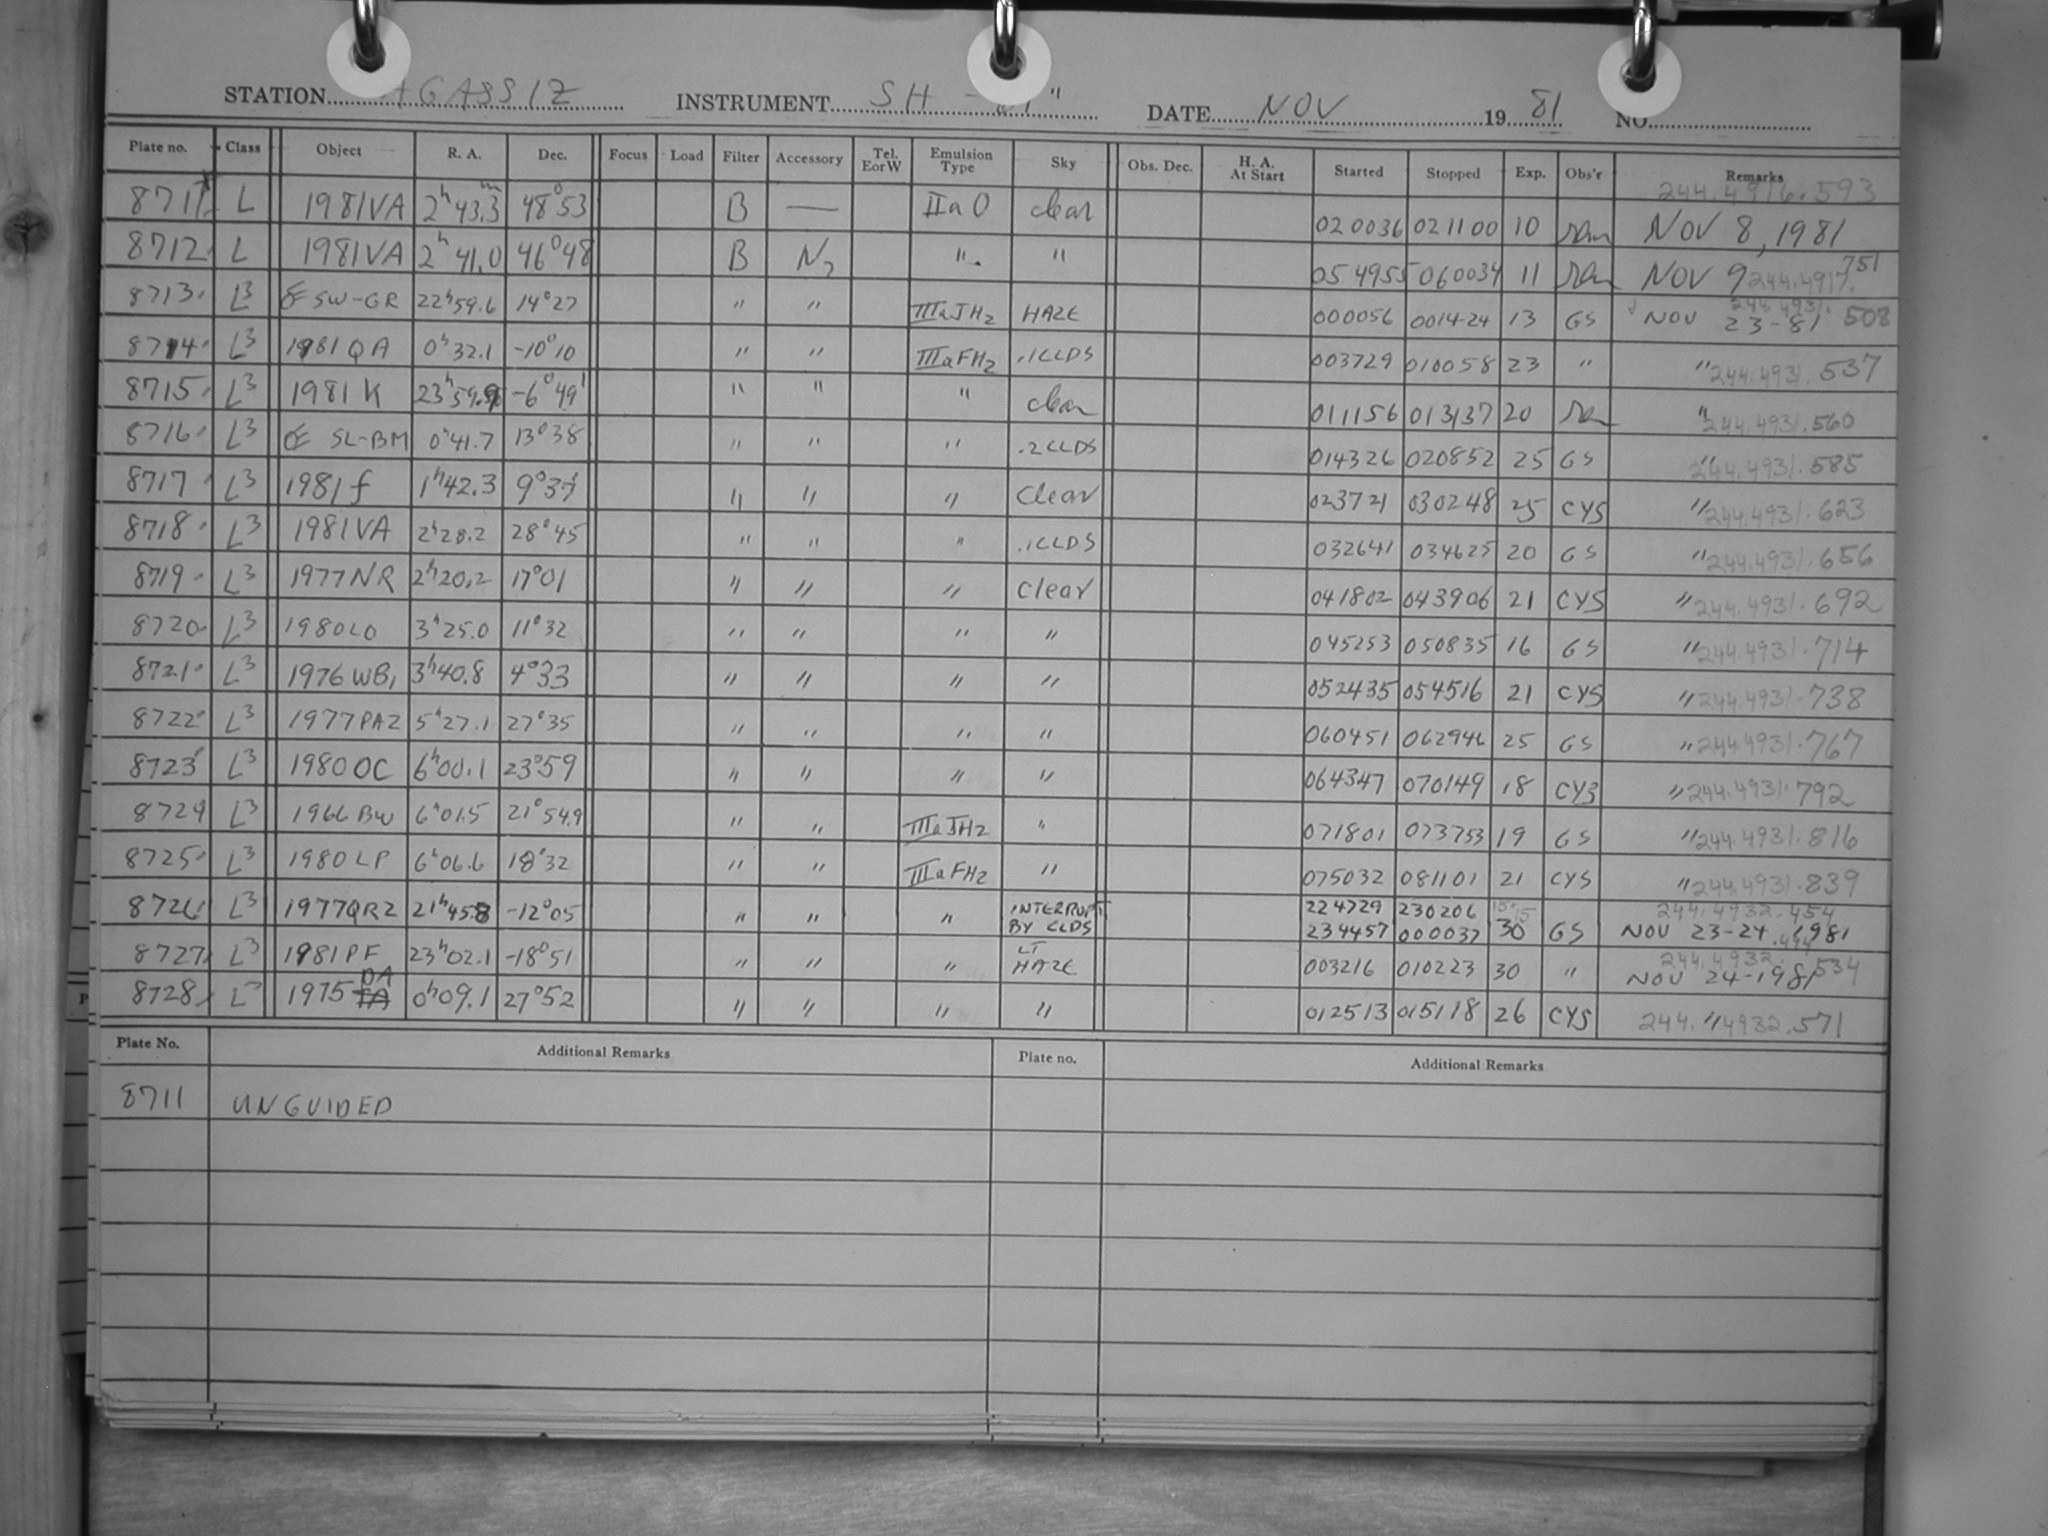 STATION AGASSIZ INSTRUMENT SH - 61" DATE NOV 19 81 NO.
Plate no. Class Object R. A. Dec. Focus Load Filter Accessory Tel. EorW Emulsion Type Sky Obs. Dec. H. A. At Start Started Stopped Exp. Obs'r Remarks
244.4916.593
8711 L 1981VA 2h 43.3m 48°53 B — IIaO clear 020036 021100 10 NOV 8, 1981
8712 L 1981VA 2h 41.0 46°48 B N2 " " 054955 060034 11 NOV 9 244.4917.751
8713 L3 OE SW-GR 22h59.6 14°27 " " IIIaJH2 HAZE 000056 001424 13 GS NOV 23-81 244.4931.508
8714 L3 1981QA 0h32.1 -10°10 " " IIIaFH2 .1CLDS 003729 010058 23 " " 244.4931.537
8715 L3 1981K 23h59.9 -6°49' " " " clear 011156 013137 20 " 244.4931.560
8716 L3 OE SL-BM 0h41.7 13°38 " " " .2CLDS 014326 020852 25 GS " 244.4931.585
8717 L3 1981f 1h42.3 " " " Clear 023721 030248 25 CYS " 244.4931.623
8718 L3 1981VA 2h28.2 28°45 " " " .1CLDS 032641 034625 20 GS " 244.4931.656
8719 L3 1977NR 2h20.2 17°01 " " " Clear 041802 043906 21 CYS " 244.4931.692
8720 L3 1980LO 3h25.0 11°32 " " " " 045253 050835 16 GS " 244.4931.714
8721 L3 1976WB1 3h40.8 4°33 " " " " 052435 054516 21 CYS " 244.4931.738
8722 L3 1977PA2 5h27.1 27°35 " " " " 060451 062946 25 GS " 244.4931.767
8723 L3 1980OC 6h00.1 23°59 " " " " 064347 070149 18 CYS " 244.4931.792
8724 L3 1966BW 6h01.5 21°54.9 " " IIIaJH2 " 071801 073753 19 GS " 244.4931.816
8725 L3 1980LP 6h06.6 18°32 " " IIIaFH2 " 075032 081101 21 CYS " 244.4931.839
8726 L3 1977QR2 21h45.8 -12°05 " " " INTERRUPT 224729 230206 15+15 244.4932.454
BY CLDS 234457 000037 30 GS NOV 23-24 1981 .494
8727 L3 1981PF 23h02.1 -18°51 " " " LT HAZE 003216 010223 30 " NOV 24-1981 244.4932.534
8728 L3 1975 DA 0h09.1 27°52 " " " " 012513 015118 26 CYS " 244.4932.571
Plate No. Additional Remarks Plate no. Additional Remarks
8711 UNGUIDED